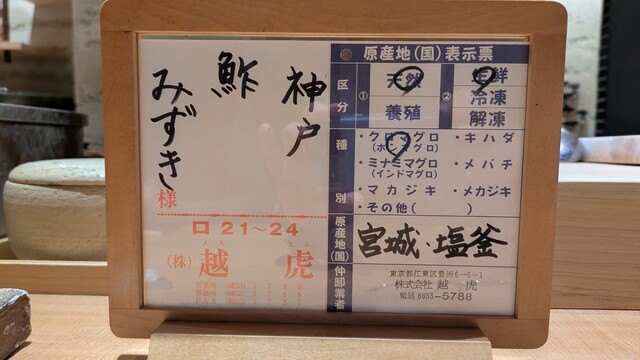 神戸
鮓
みずき
様
口21～24
(株) 越虎
えつ とら
原産地(国)表示票
区分
①
天然
養殖
②
生鮮
冷凍
解凍
種別
・クロマグロ
(ホンマグロ)
・キハダ
・ミナミマグロ
(インドマグロ)
・メバチ
・マカジキ
・メカジキ
・その他( )
原産地(国)
宮城・塩釜
仲卸業者
東京都江東区豊洲6-6-1
株式会社 越虎
電話 6633-5788